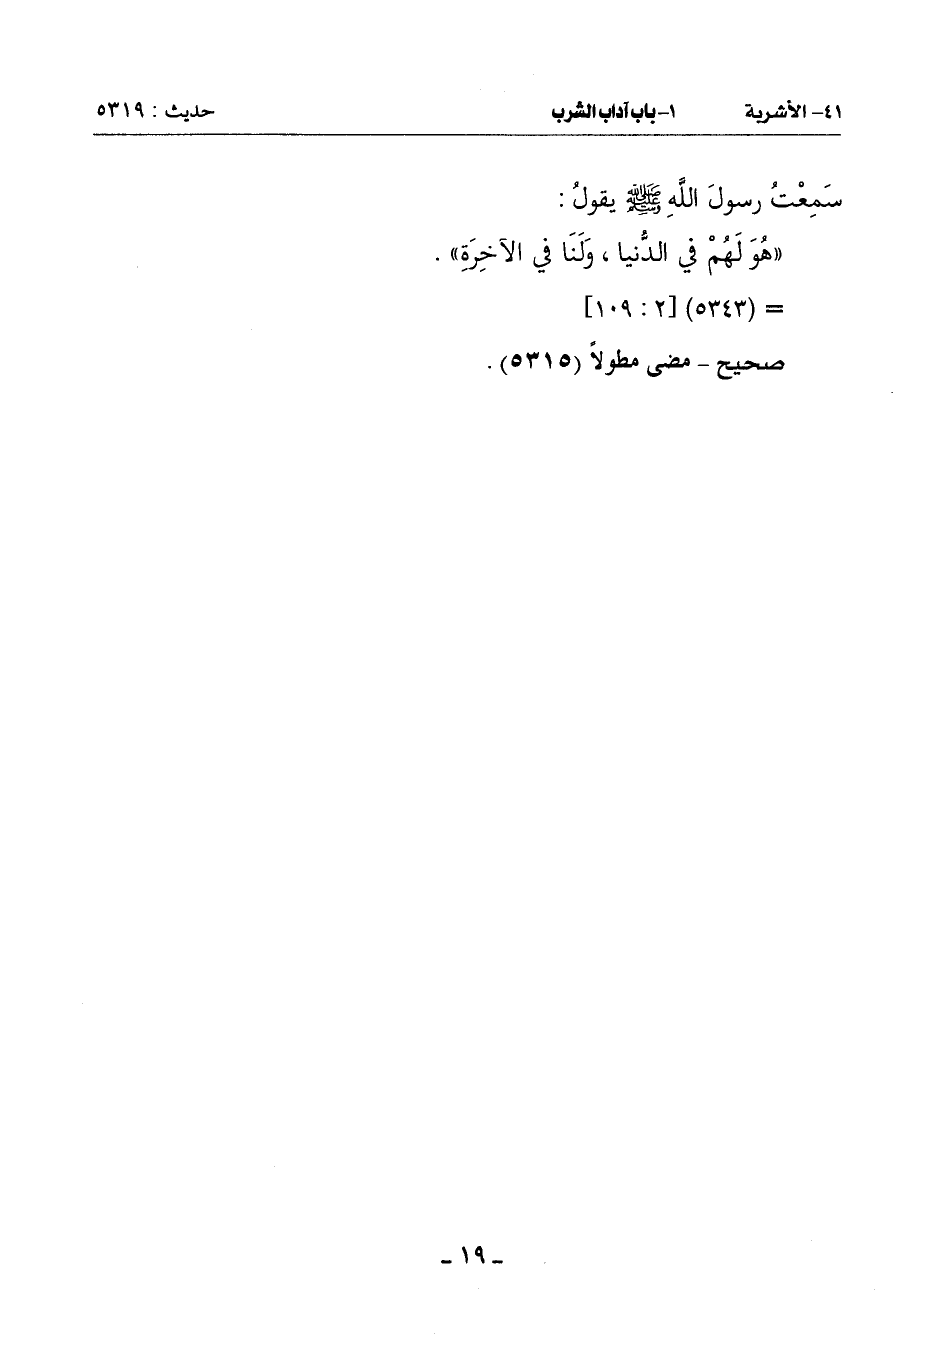 ٤١- الأشربة ١- باب آداب الشرب حديث : ٥٣١٩
سَمِعْتُ رسولَ اللَّهِ ﷺ يقولُ :
«هُوَ لَهُمْ في الدُّنيا ، وَلَنَا في الآخِرَةِ» .
= (٥٣٤٣) [٢ : ١٠٩]
صحيح - مضى مطولاً (٥٣١٥) .
- ١٩ -